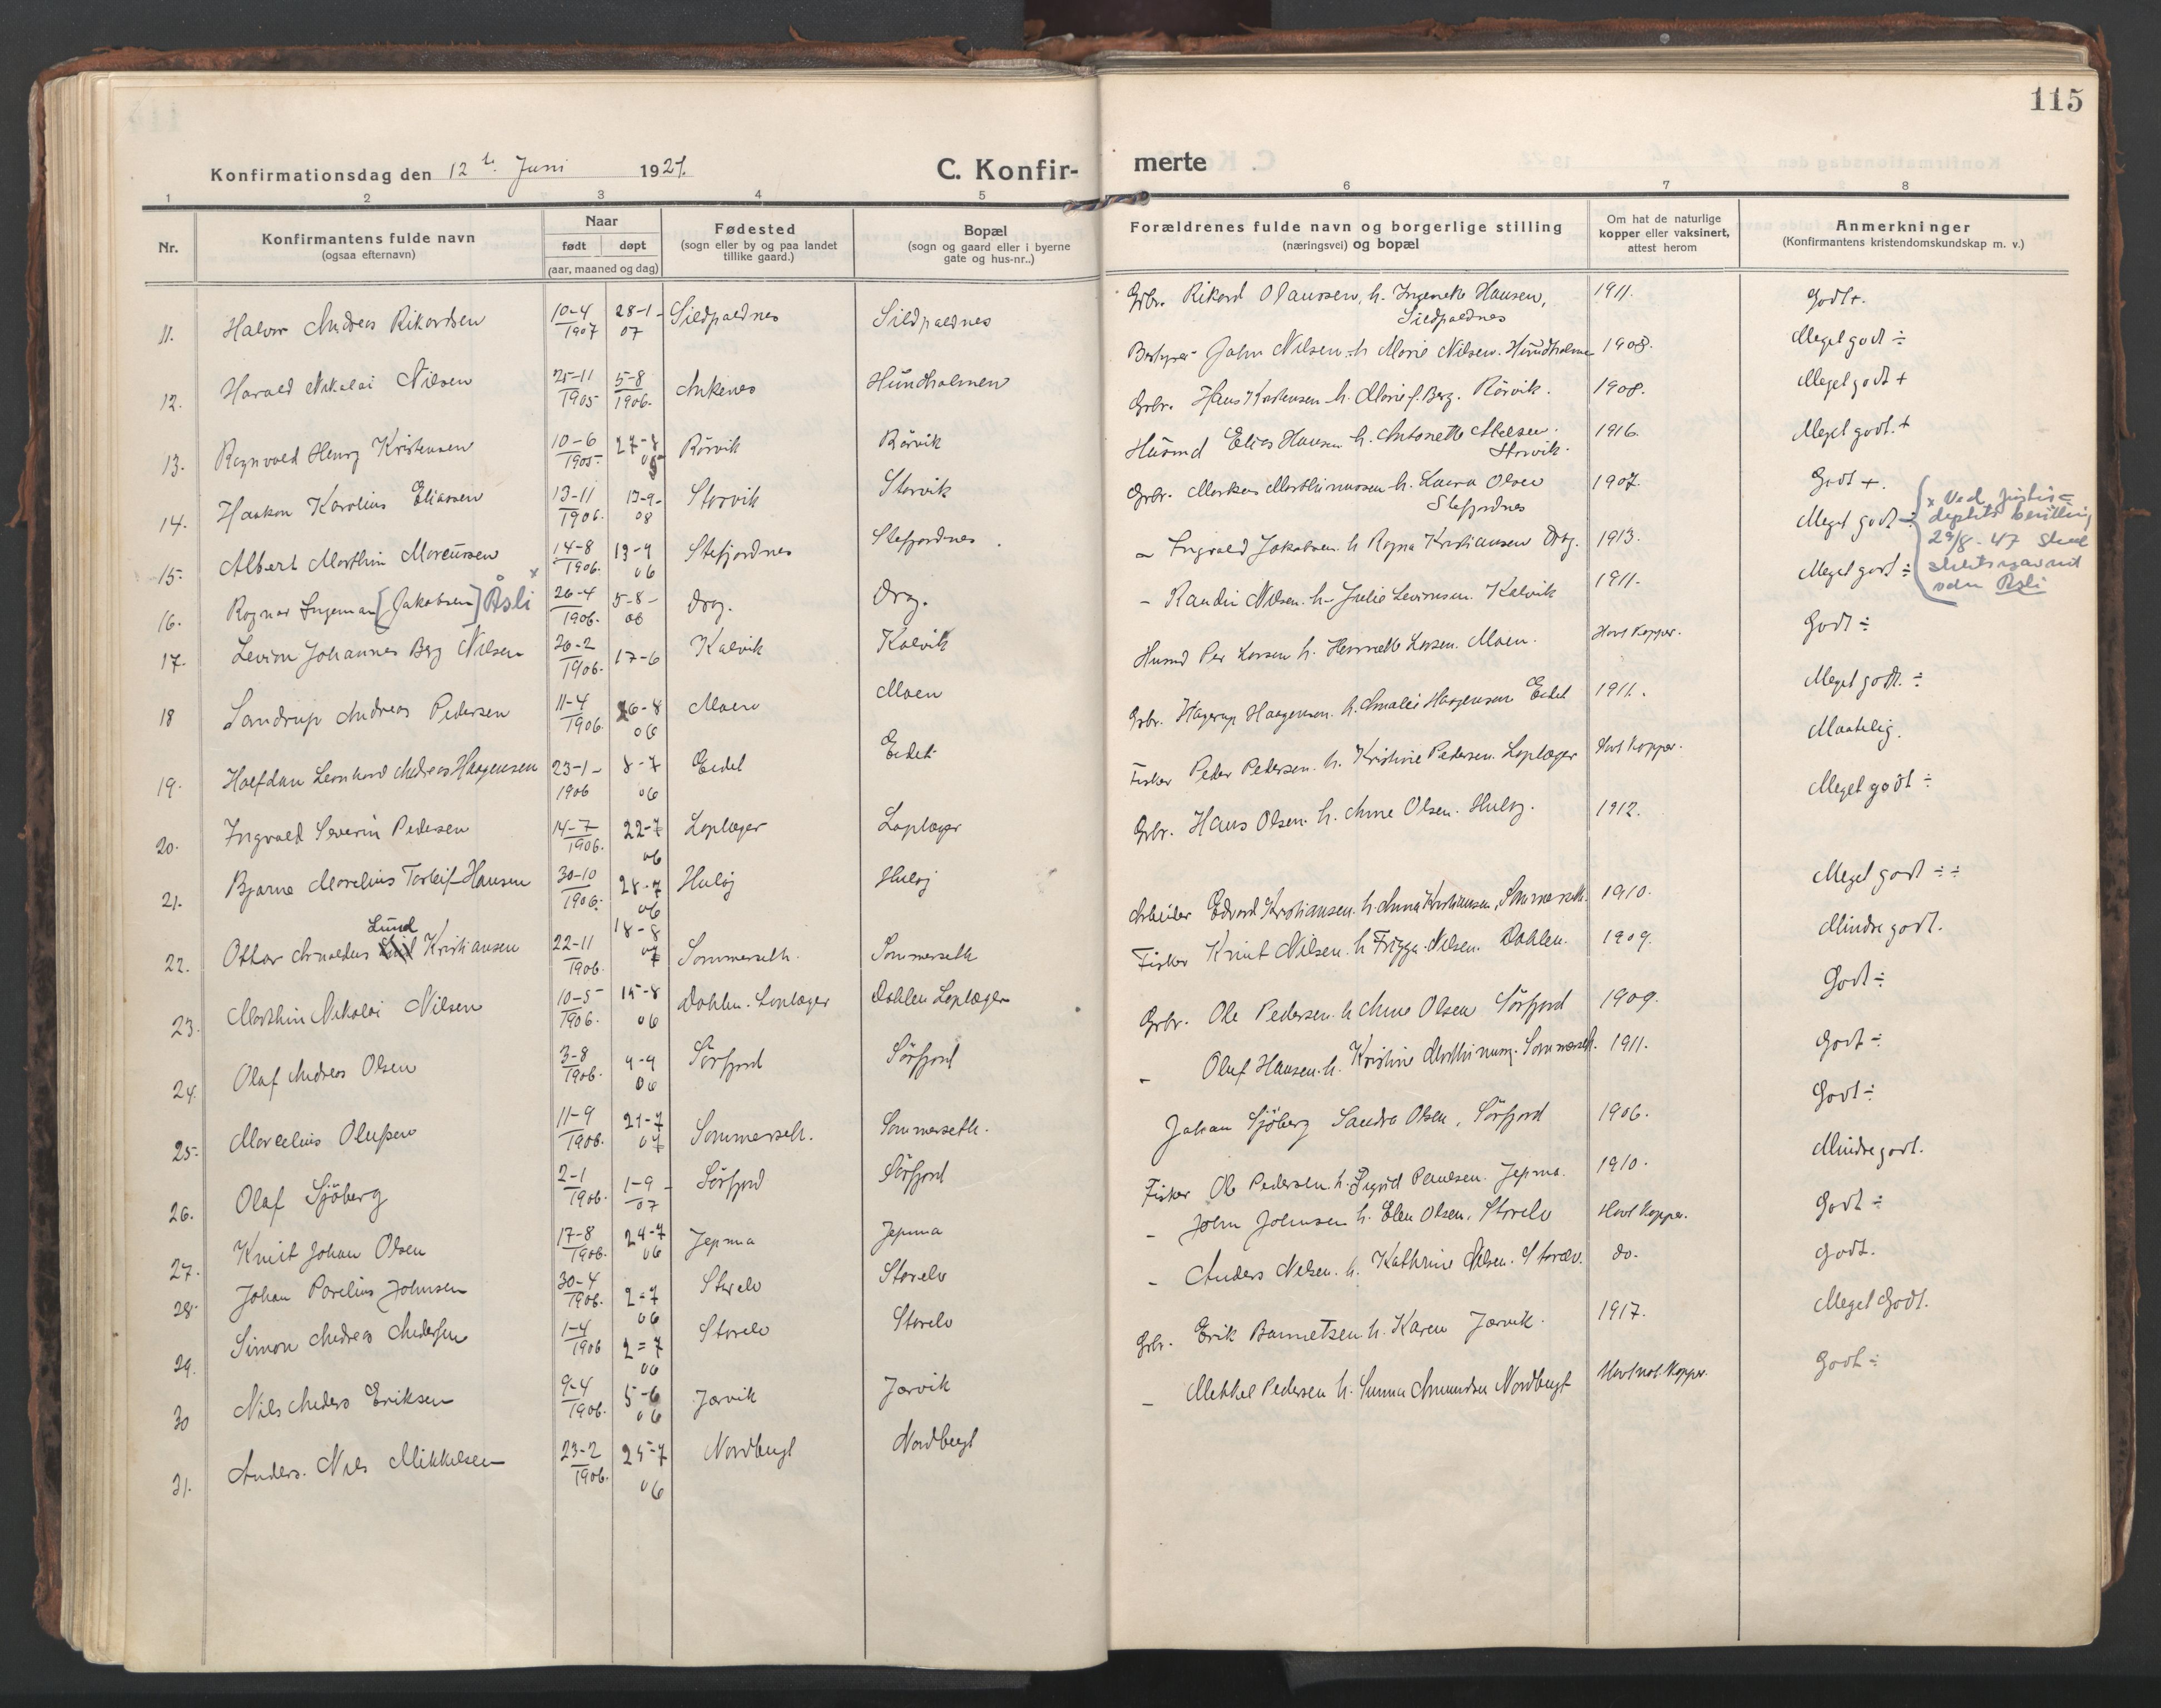 115
Konfirmationsdag den 12te Juni 1921.
C. Konfir- merte
1 2 3 4 5 6 7 8
Nr.
Konfirmantens fulde navn
(ogsaa efternavn)
Naar
født døpt
(aar, maaned og dag)
Fødested
(sogn eller by og paa landet
tillike gaard.)
Bopæl
(sogn og gaard eller i byerne
gate og hus-nr..)
Forældrenes fulde navn og borgerlige stilling
(næringsvei) og bopæl
Om hat de naturlige
kopper eller vaksinert,
attest herom
Anmerkninger
(Konfirmantens kristendomskundskap m. v.)
11. Halvor Andreas Rikardsen 10-4 1907 28-1- 07 Sildpaldnes Sildpaldnes Grbr. Rikard Olaussen, h. Hansen, Sildpaldnes 1911. Godt+.
12. Harald Nikolai Nilsen 25-11 1905 5-8 1906. Ankenes Hundholmen Bestyrer John Nilsen. h. Marie Nilsen. Hundholmen 1908. Meget godt ÷
13. Ragnvald Henry Kristensen 10-6 1905. 27-8 05 Rörvik Rörvik Grbr. Hans Kristensen h. Marie f. Berg. Rörvik. 1908. Meget godt +
14. Haakon Karolius Eliassen 13-11 1906. 13-9- 08 Storvik Storvik Husmd Elias Hansen h. Antonette Storvik. 1916. Meget godt. +
15. Albert Marthin Marcussen 14-8 1906. 13-9 06 Stefjordnes Stefjordnes. Grbr. Markus Marthinussen h. Laura Olsen Stefjordnes 1907. Godt +.
16. Ragnar Ingeman [Jakobsen] Åsli x 26-4 1906. 5-8- 06 Drag. Drag. - Ingvald Jakobsen h. Ragna Kristiansen Drag. 1913. Meget godt ÷
x Ved justis=
deptets bevilling
29/8-47 Skal
slektsnavnet
være Åsli
17. Levion Johannes Berg Nilsen 26-2 1906. 17-6 Kalvik Kalvik - Randin Nilsen. h. Julie Kalvik 1911. Meget godt ÷
18 Sandrup Andreas Pedersen 11-4 1906. 26-8 06 Moen Moen Husmd Per Larsen h. Larsen. Moen. Havt Kopper. Godt ÷
19. Halfdan Leonhard Andreas Haagensen 23-1- 1906 8-7 06 Eidet Eidet Grbr. Hagerup Haagensen. h. Amalie Haagensen Eidet 1911. Meget godt. ÷
20. Ingvald Severin Pedersen 14-7 1906. 22-7 06 Loplæger Loplæger Fisker Peder Pedersen. h. Kristine Pedersen. Loplæger Havt kopper. Maatelig.
21. Bjarne Marelius Torleif Hansen 30-10 1906. 28-7 06 Huløj Huløj Grbr. Hans Olsen. h. Anne Olsen. Huløj. 1912. Meget godt ÷
22. Ottar Arnoldus Lund Kristiansen 22-11 1906. 18-8 07 Sommerseth. Sommerseth Arbeider Edvard Kristiansen. h. Anna Kristiansen, Sommerseth. 1910. Meget godt ÷ ÷
23. Marthin Nikolai Nilsen 10-5 1906. 15-8 06 Dahlen. Loplæger Dahlen Loplæger Fisker Knut Nilsen. h. Frigga Nilsen. Dahlen. 1909. Mindre godt.
24. Olaf Andreas Olsen 3-8 1906. 9-9 06 Sörfjord Sörfjord Grbr. Ole Pedersen. h. Anne Olsen Sörfjord 1909. Godt ÷
25. Marcelius Olufsen 11-9 1906. 21-7 07 Sommerseth. Sommerseth. - Oluf Hansen. h. Kristine Sommerseth. 1911. Godt ÷
26. Olaf Sjöberg 2-1 1906. 1-9- 07 Sörfjord Sörfjord Johan Sjöberg Sandra Olsen, Sörfjord 1906. Godt ÷
27. Knut Johan Olsen 17-8 1906. 24-7 06 Jepma Jepma Fisker Ole Pedersen. h. Sigrid Paulsen. Jepma. 1910. Mindre godt.
28. Johan Parelius Johnsen 30-4 1906. 2=7 06 Storelv Storelv - John Johnsen h. Elen Olsen. Storelv Havt Kopper. Godt ÷
29. Simon Andreas Andersen 1-4 1906 2=7 06 Storelv Storelv - Anders Nilsen. h. Kathrine Nilsen. Storelv. do. Godt.
30 Nils Anders Eriksen 9-4 1906. 5-6 06 Jarvik Jarvik Grbr. Erik h. Karen Jarvik. 1917. Meget Godt.
31. Anders. Nils Mikkelsen 23-2 1906. 25-7 06 Nordbugt Nordbugt - Mikkel Pedersen h. Sunna Amundsen Nordbugt Havt nat. Kopper. Godt ÷